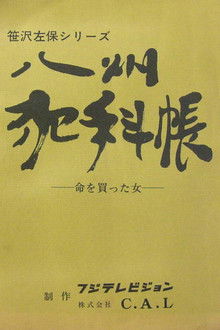 笹沢左保シリーズ
八州
犯科帳
──命を買った女──
制作 フジテレビジョン
株式会社 C.A.L